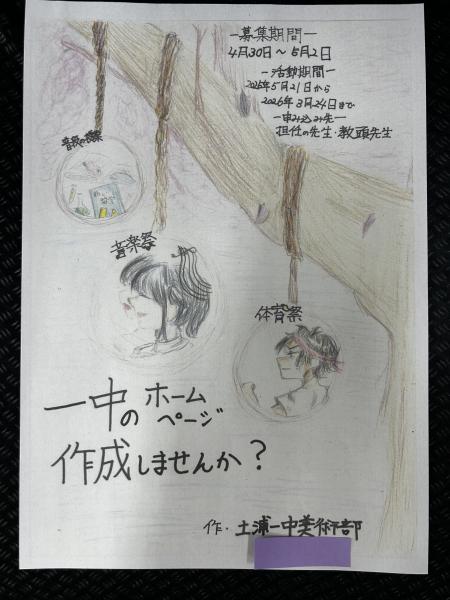 ―募集期間―
4月30日～5月2日
―活動期間―
2025年5月21日から
2026年3月24日まで
―申み込み先―
担任の先生・教頭先生
音楽祭
体育祭
一中のホーム
ページ
作成しませんか？
作・土浦一中美術部